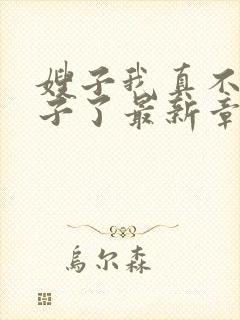 嫂子我真不
子了最新章
烏尔森